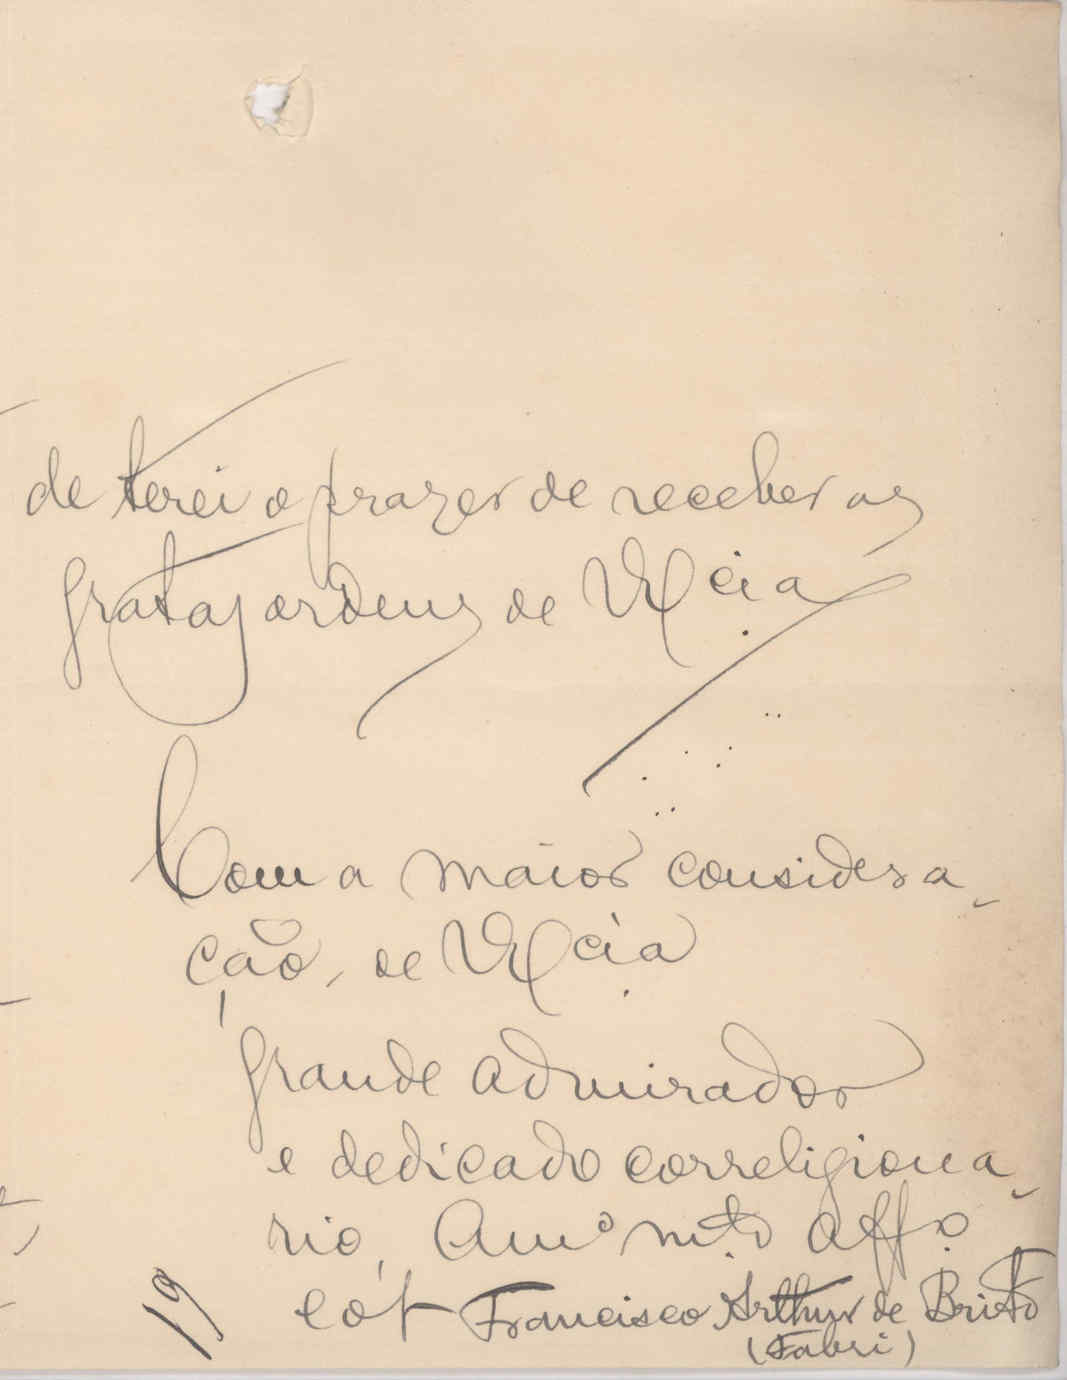 de terei o prazer de receber as
gratas ordens de V Excia
Com a maior considera-
ção, de V Excia
grande admirador
e dedicado correligiona-
rio, Amº mto affº
Francisco Arthur de Brito
(Fabri)
19